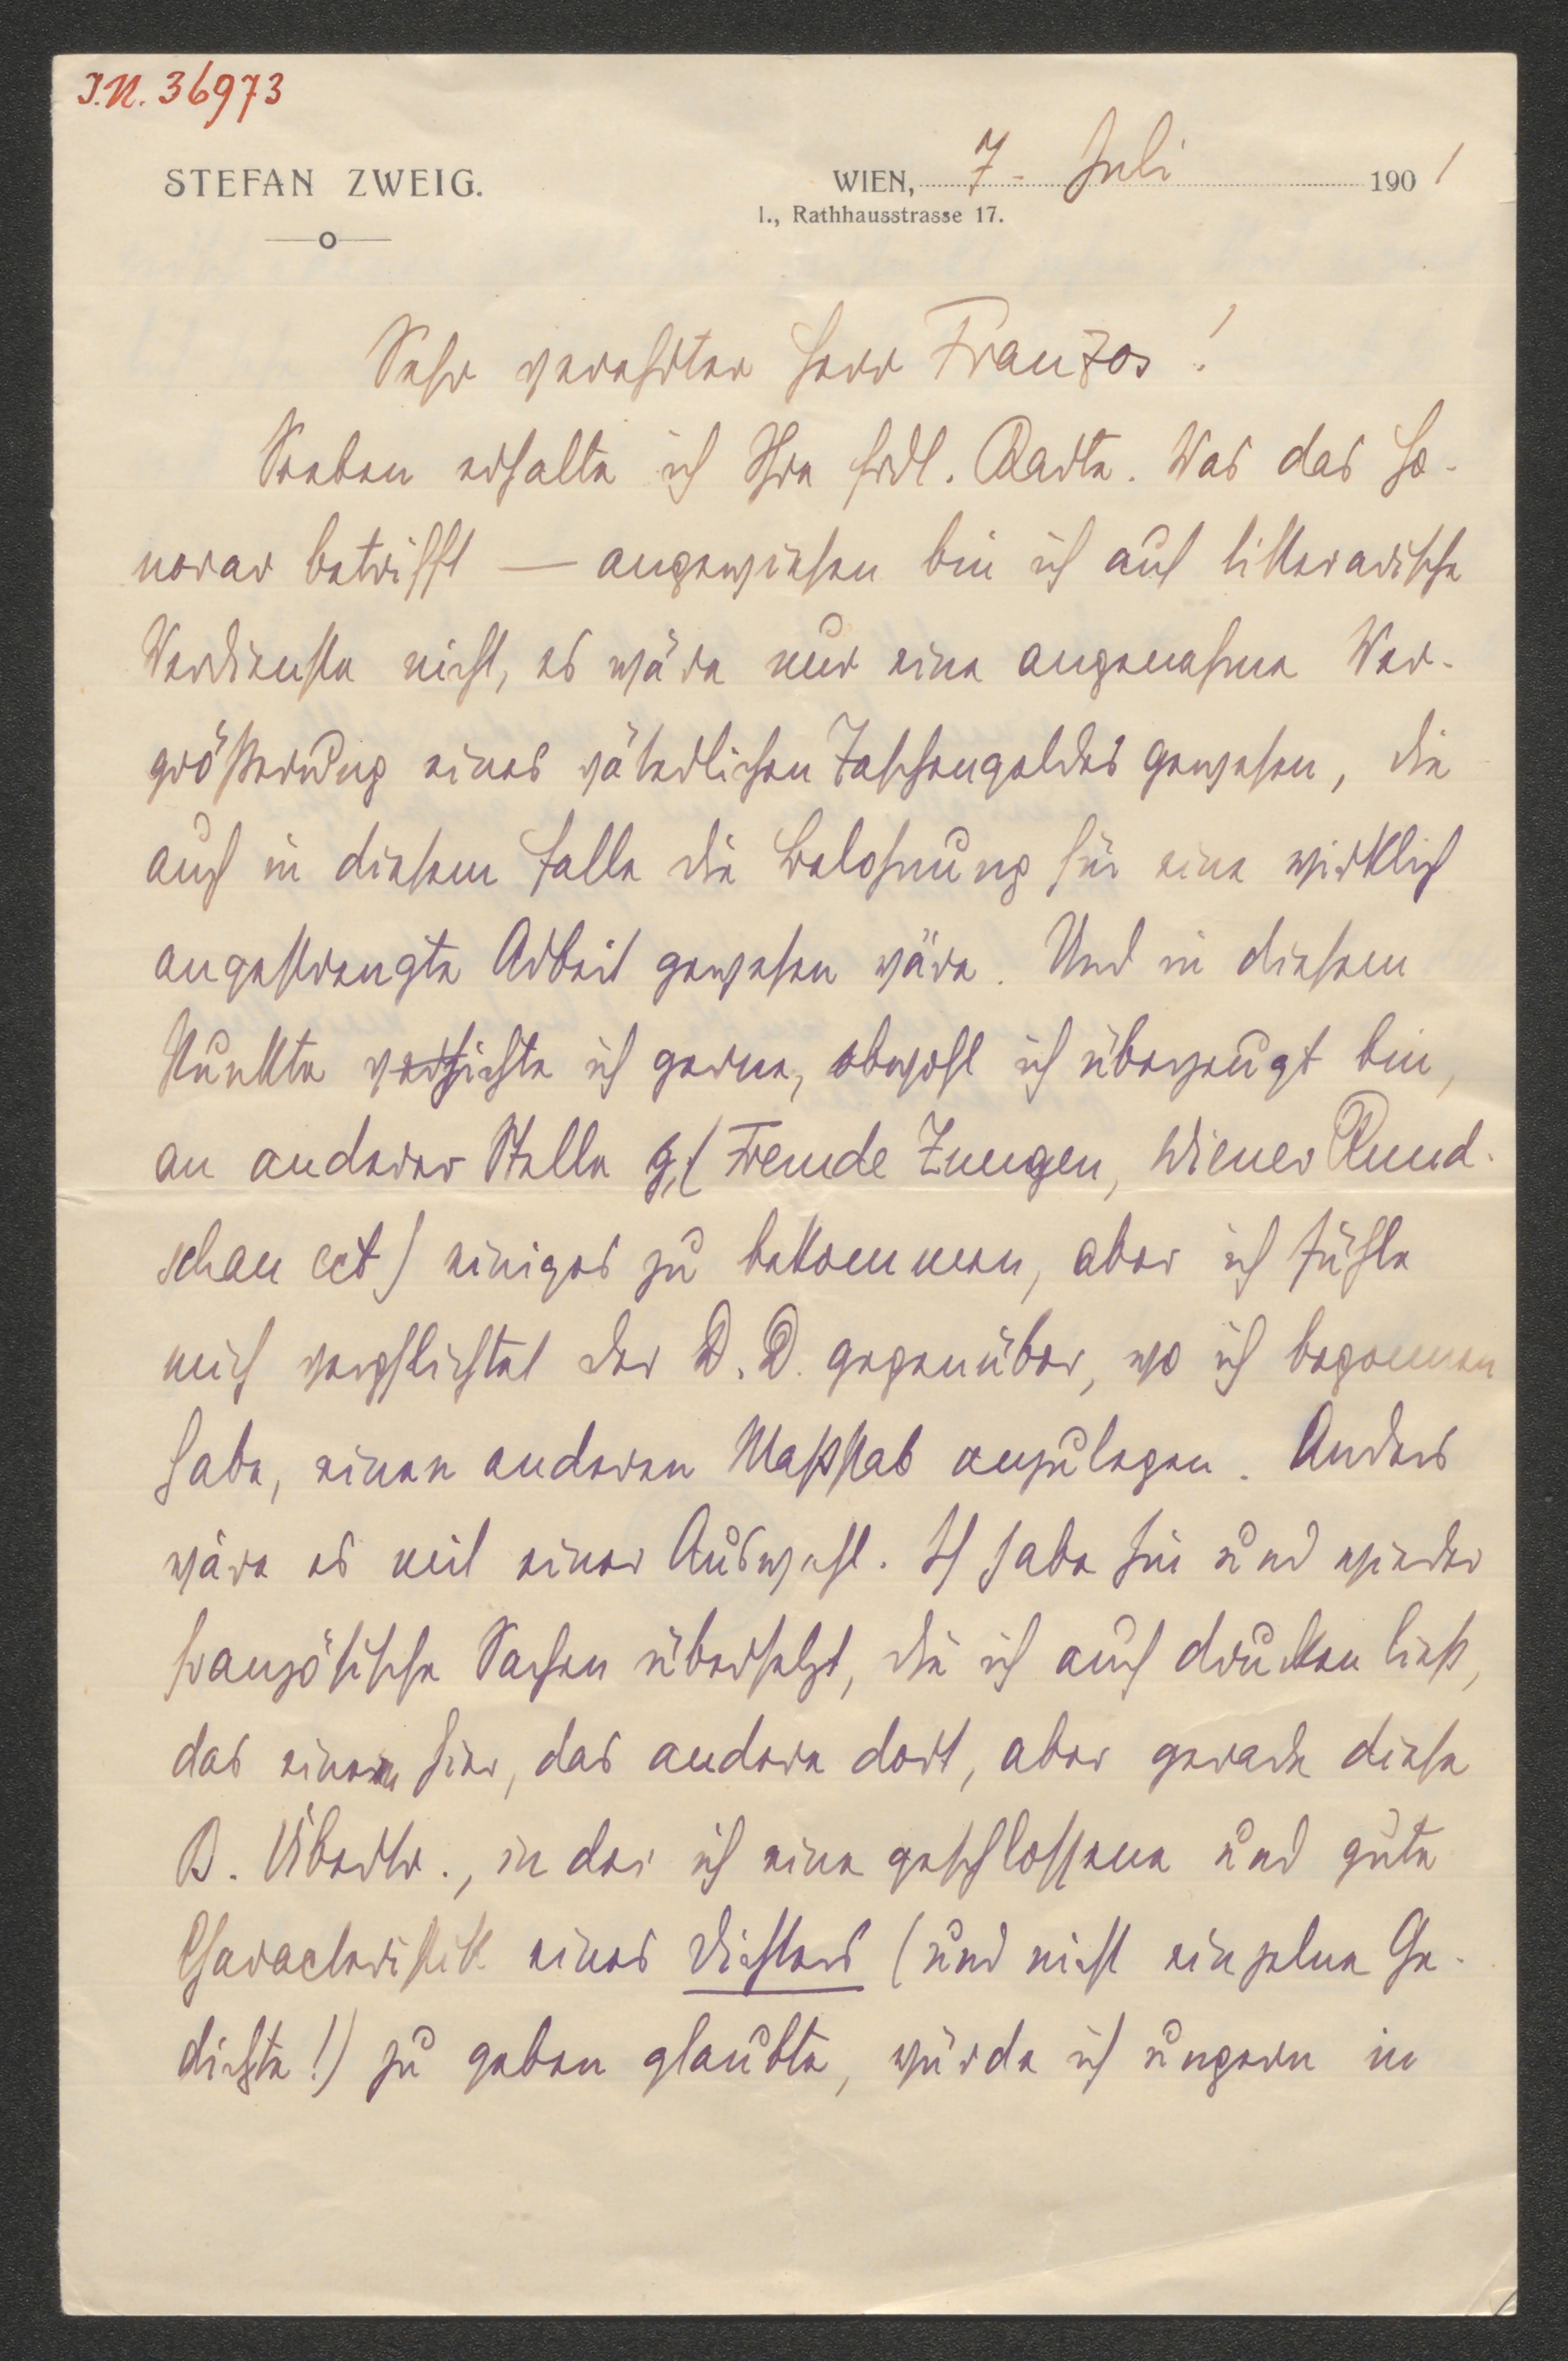 J.N. 36973
STEFAN ZWEIG.
WIEN, 7. Juli 1901
I., Rathhausstrasse 17.
Sehr verehrter Herr Franzos!
Soeben erhalte ich Ihre frdl. Karte. Was das Ho-
norar betrifft — angewiesen bin ich auf litterarische
Verdienste nicht, es wäre nur eine angenehme Ver-
größerung eines väterlichen Taschengeldes gewesen, die
auch in diesem Falle die Belohnung für eine wirklich
angestrengte Arbeit gewesen wäre. Und in diesem
Punkte verzichte ich gerne, obwohl ich überzeugt bin,
an anderer Stelle (Fremde Zungen, Wiener Rund-
schau ect) einiges zu bekommen, aber ich fühle
mich verpflichtet der D. D. gegenüber, wo ich begonnen
habe, einen anderen Maßstab anzulegen. Anders
wäre es mit einer Auswahl. Ich habe hin und wieder
französische Sachen übersetzt, die ich auch drucken ließ,
das eine hier, das andere dort, aber gerade diese
B. Übertr., in der ich eine geschlossene und gute
Characteristik eines Dichters (und nicht einzelne Ge-
dichte!) zu geben glaubte, würde ich ungern in